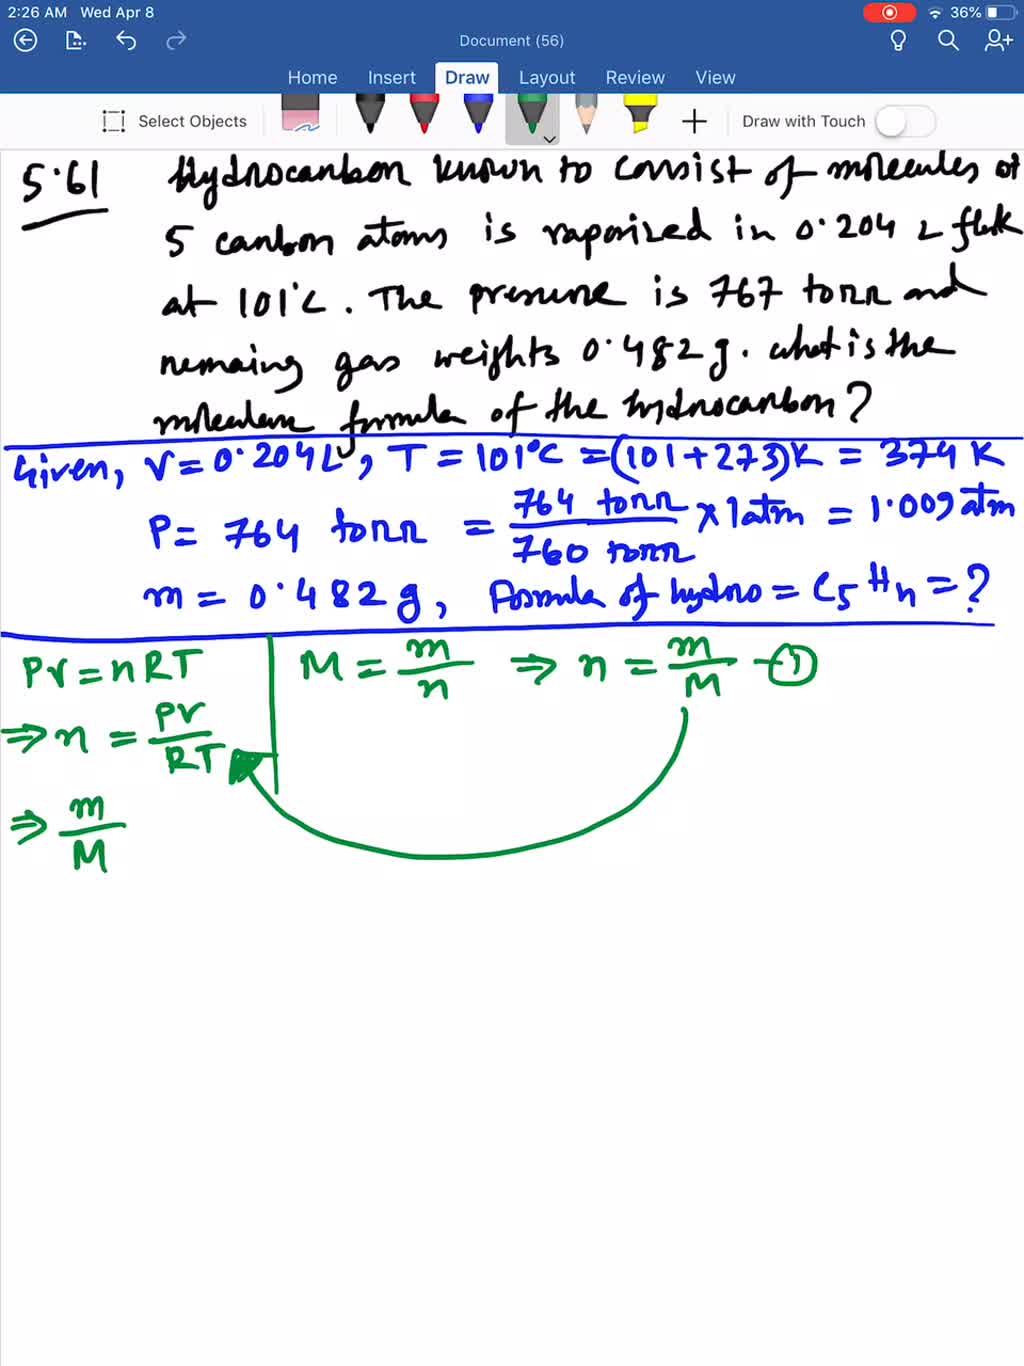 2:26 AM Wed Apr 8 36%
Document (56)
Home Insert Draw Layout Review View
Select Objects Draw with Touch
5.61 Hydrocarbon known to consist of molecules of
5 carbon atoms is vaporized in 0.204 L flask
at 101°C. The pressure is 767 torr and
remaing gas weights 0.482 g. what is the
molecular formula of the hydrocarbon?
Given, V = 0.204 L, T = 101°C = (101+273)K = 374 K
P = 764 torr = 764 torr / 760 torr × 1 atm = 1.009 atm
m = 0.482 g, Formula of hydro = C5Hn = ?
PV = nRT M = m/n ⇒ n = m/M - ①
⇒ n = PV/RT
⇒ m/M